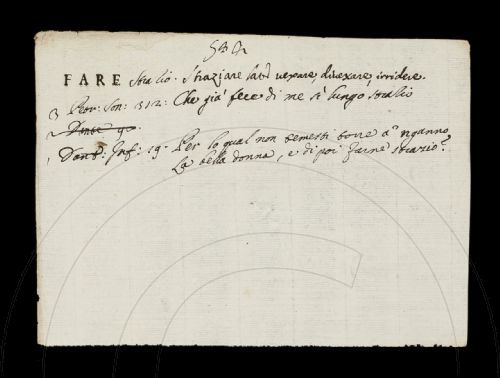 FARE stratio. Straziare lat: vexare, divexare, irridere.
3 Petr: Son: 312: Che già fece di me sì lungo stratio
2 Dante 90.
1 Dant: Inf: 19. Per lo qual non temesti torre a 'nganno
La bella donna, e di poi farne strazio?